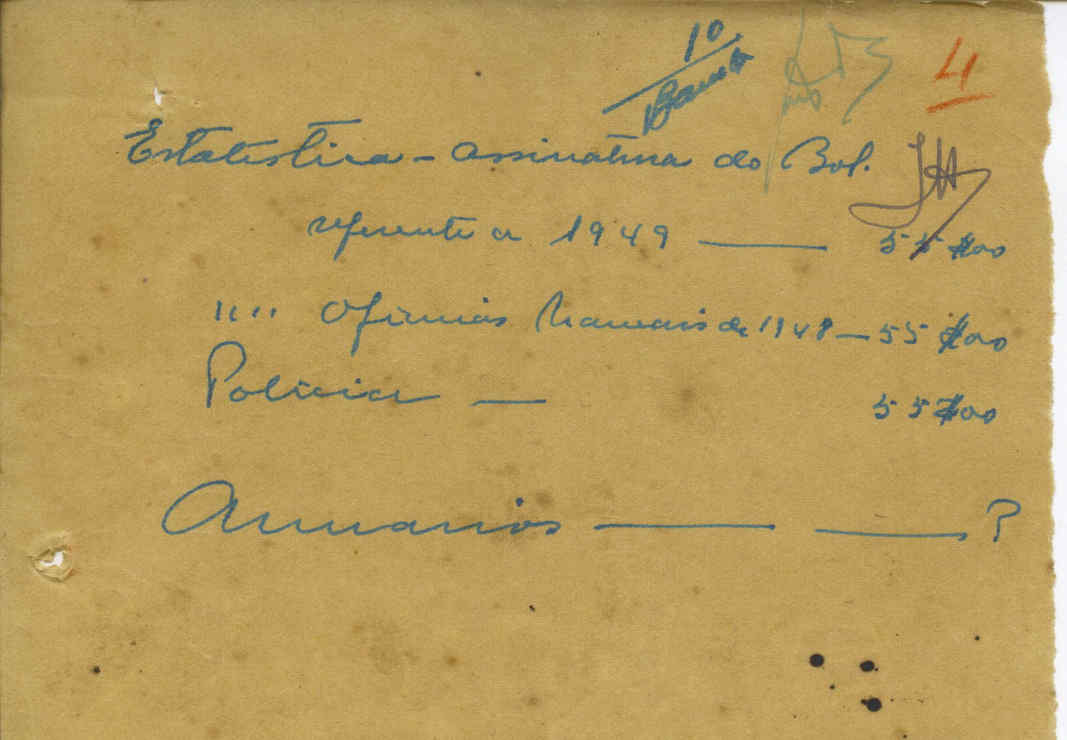 10
4
Estatística - assinatura do Bol.
referente a 1949 — 55$00
"" Oficinas Navais de 1948 — 55$00
Policia — 55$00
Anuarios — — ?